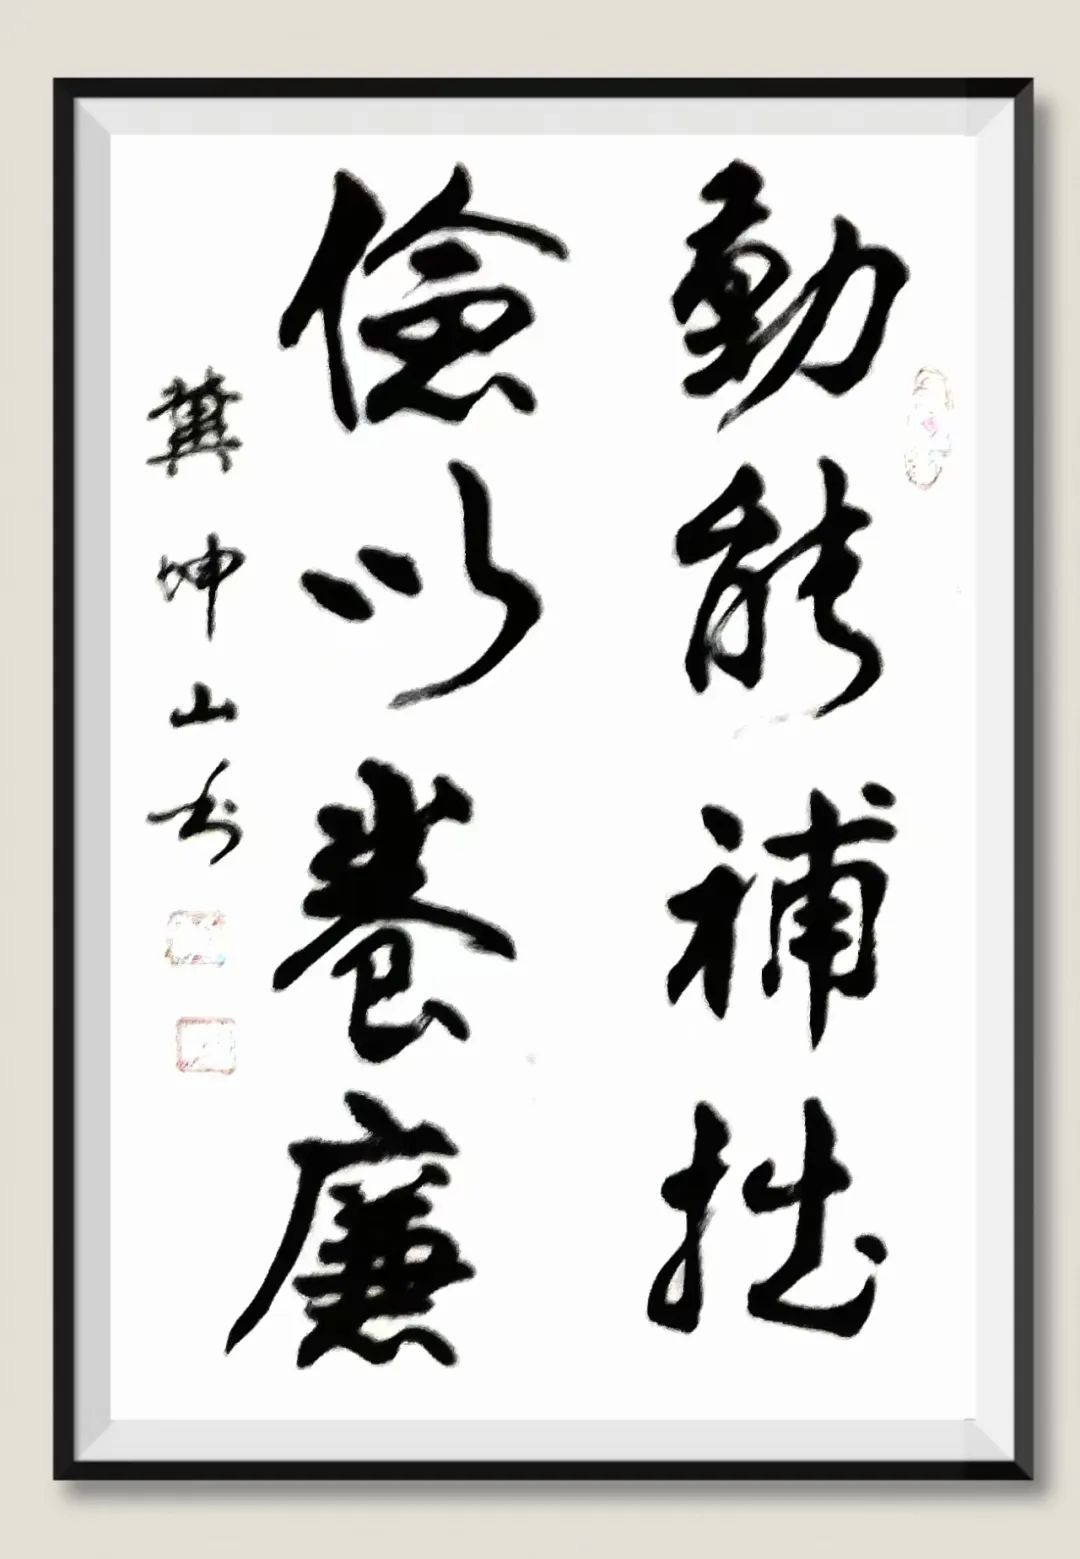 勤能補拙
儉以養廉
冀坤山书